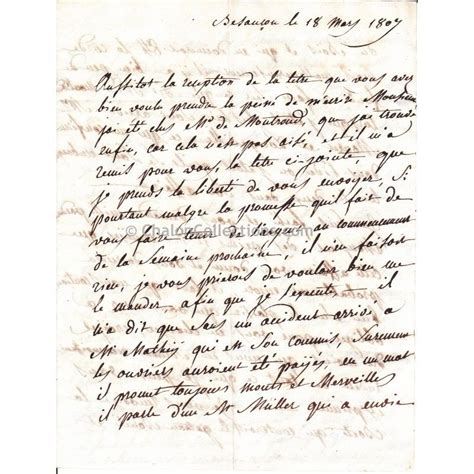 Besançon le 18 Mars 1807
Aussitot la reception de la letre que vous avez
bien voulu prendre la peine de m'ecrire Monsieur
j'ai été chez Mr de Montrond, que j'ai trouvé
enfin, car cela n'est pas aisé, et il m'a
remis pour vous, la letre ci-jointe, que
je prends la liberté de vous envoyer, Si
pourtant malgré la promesse qu'il fait de
vous faire tenir au commencement
de la Semaine prochaine, il n'en faisoit
rien, je vous prierois de vouloir bien me
le mander, afin que je il
m'a dit que sans un accident arrivé, a
Mr Mathey qui est Son commis, Surement
les ouvriers auroient été payés, en un mot
il promet toujours monts et Merveilles
il parle d'un Mr Muller qui a envie
© ChalonCollections.com